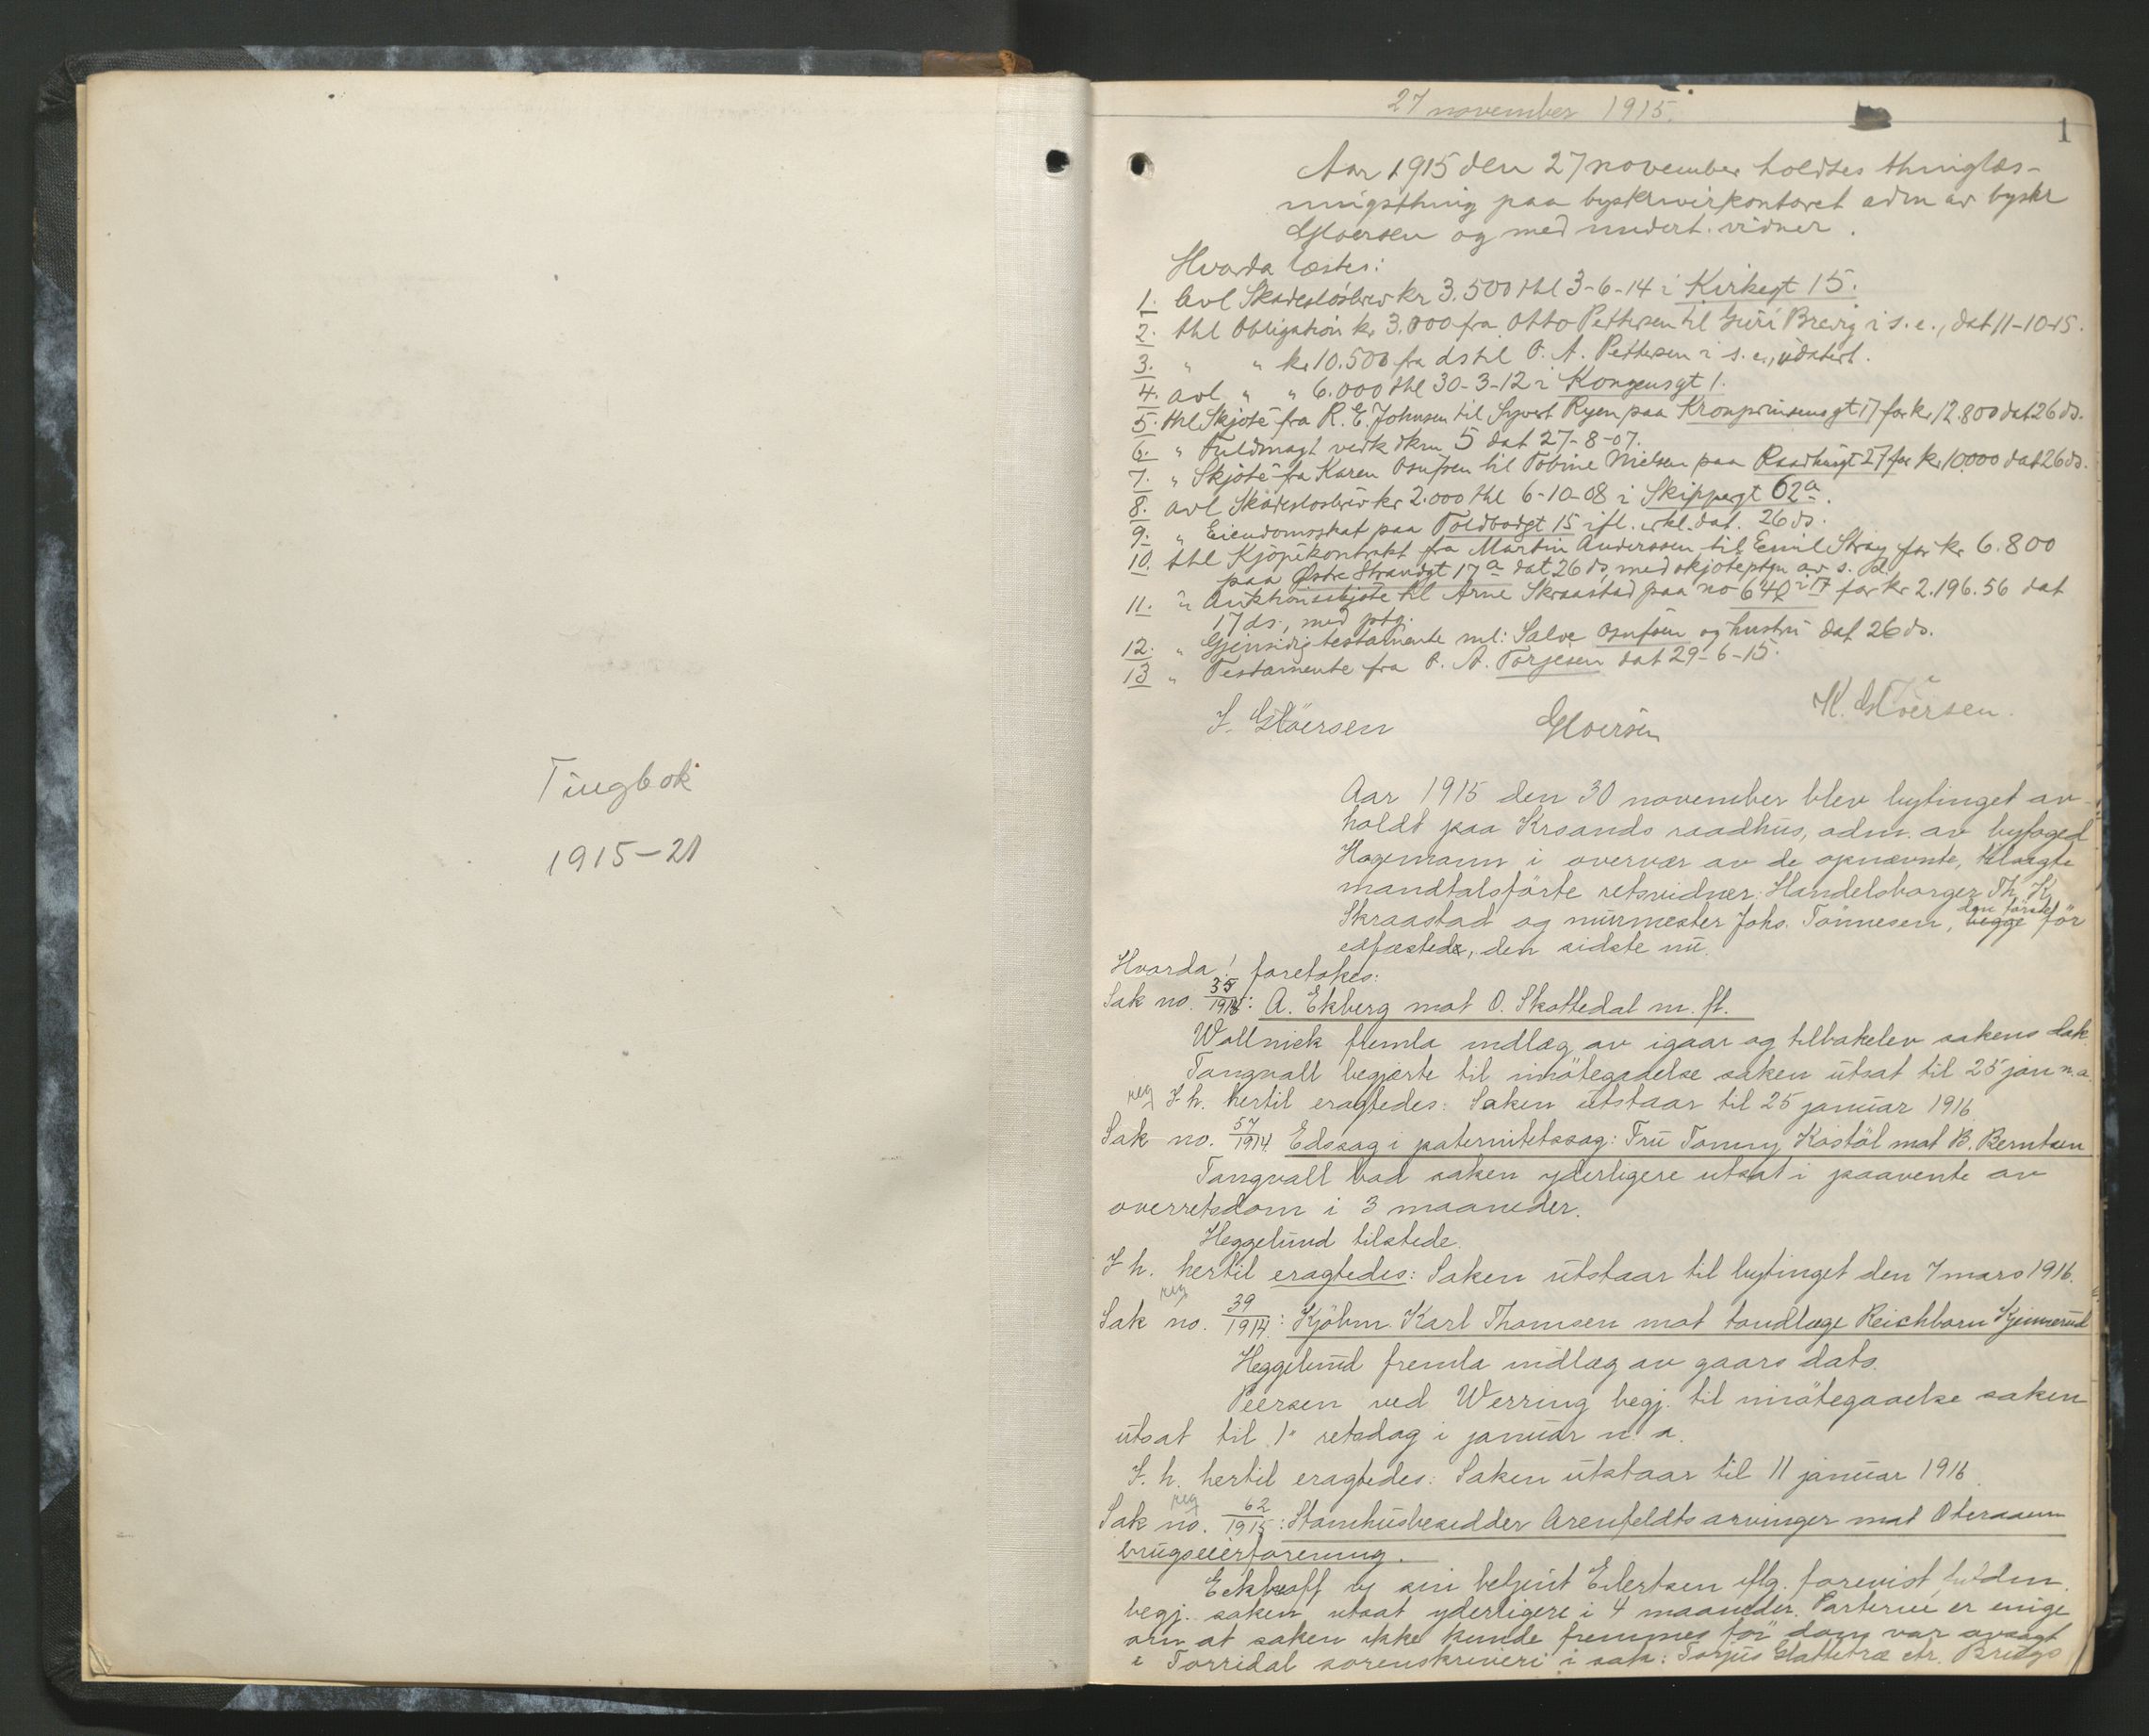 Tingbok
1915-21
27 november 1915.
1
Aar 1915 den 27 november holdtes thinglæs-
ningsthing paa byskriverkontoret adm av byskr
Gløersen og med undert. vidner.
Hvorda læstes:
1. Avl Skadesløsbrev kr 3.500 thl 3-6-14 i Kirkegt 15.
2. thl Obligation kr 3.000 fra Otto Pettersen til Guri Brevig i s. e., dat 11-10-15.
3. " " kr 10.500 fra ds til O. A. Pettersen i s. e., udatert.
4. avl " " 6.000 thl 30-3-12 i Kongensgt 1.
5. thl Skjøte fra R. E. Johnsen til Syvert Ryen paa Kronprinsensgt 17 for kr 12.800 dat 26 ds.
6. " Fuldmagt vedk dkm 5 dat 27-8-07.
7. " Skjøte fra Karen Osufsen til Tobine Nielsen paa Raadhusgt 27 for kr 10.000 dat 26 ds.
8. avl Skadesløsbrev kr 2.000 thl 6-10-08 i Skippergt 62a.
9. " Eiendomsskat paa Toldbodgt 15 ifl. erkl. dat. 26 ds.
10. thl Kjøpekontrakt fra Martin Anderssen til Emil Stray for kr 6.800
paa Østre Strandgt 17a dat 26 ds, med skjøteptgn av s. d.
11. " Auktionsskjøte til Arne Skraastad paa no 640 i 17 for kr 2.196.56 dat
17 ds., med ptg.
12. " Gjensidig testamente ml: Salve Osufsen og hustru dat 26 ds.
13 " Testamente fra O. A. Torjesen dat 29-6-15.
J. Gløersen Gløersen K. Gløersen.
Aar 1915 den 30 november blev bytinget av-
holdt paa Krsands raadhus, adm. av byfoged
Hagemann i overvær av de opnævnte, tilsagte
mandtalsførte retsvidner: Handelsborger Th. K.
Skraastad og murmester Johs. Tønnesen, begge den første før
edfæstede, den sidste nu.
Hvorda! foretokes:
Sak no. 35/1915: A. Ekberg mot O. Skottedal m. fl.
Wollnick fremla indlæg av igaar og tilbakelev sakens dok.
Tangvall begjærte til imøtegaaelse saken utsat til 25 jan n. a.
reg
I h. hertil eragtedes: Saken utstaar til 25 januar 1916.
Sak no. 57/1914. Edssag i paternitetssag: Fru Tomny Kostøl mot B. Berntsen
Tangvall bad saken yderligere utsat i paavente av
overretsdom i 3 maaneder.
Heggelund tilstede.
I h. hertil eragtedes: Saken utstaar til bytinget den 7 mars 1916.
reg
Sak no. 39/1914: Kjøbm. Karl Thomsen mot tandlæge Reichborn Kjennerud
Heggelund fremla indlæg av gaars dato.
Peersen ved Werring begj. til imøtegaaelse saken
utsat til 1" retsdag i januar n. a.
I. h. hertil eragtedes: Saken utstaar til 11 januar 1916.
reg
Sak no. 62/1915: Stamhusbesidder Arenfeldts arvinger mot Oteraaens
brugseierforening.
Eckhoff v/ sin betjent Eilertsen iflg. forevist fuldm.
begj. saken utsat yderligere i 4 maaneder. Parterne er enige
om at saken ikke kunde fremmes før dom var avsagt
i Torridal sorenskriveri i sak: Torjus Glattetræ ctr. Brugs